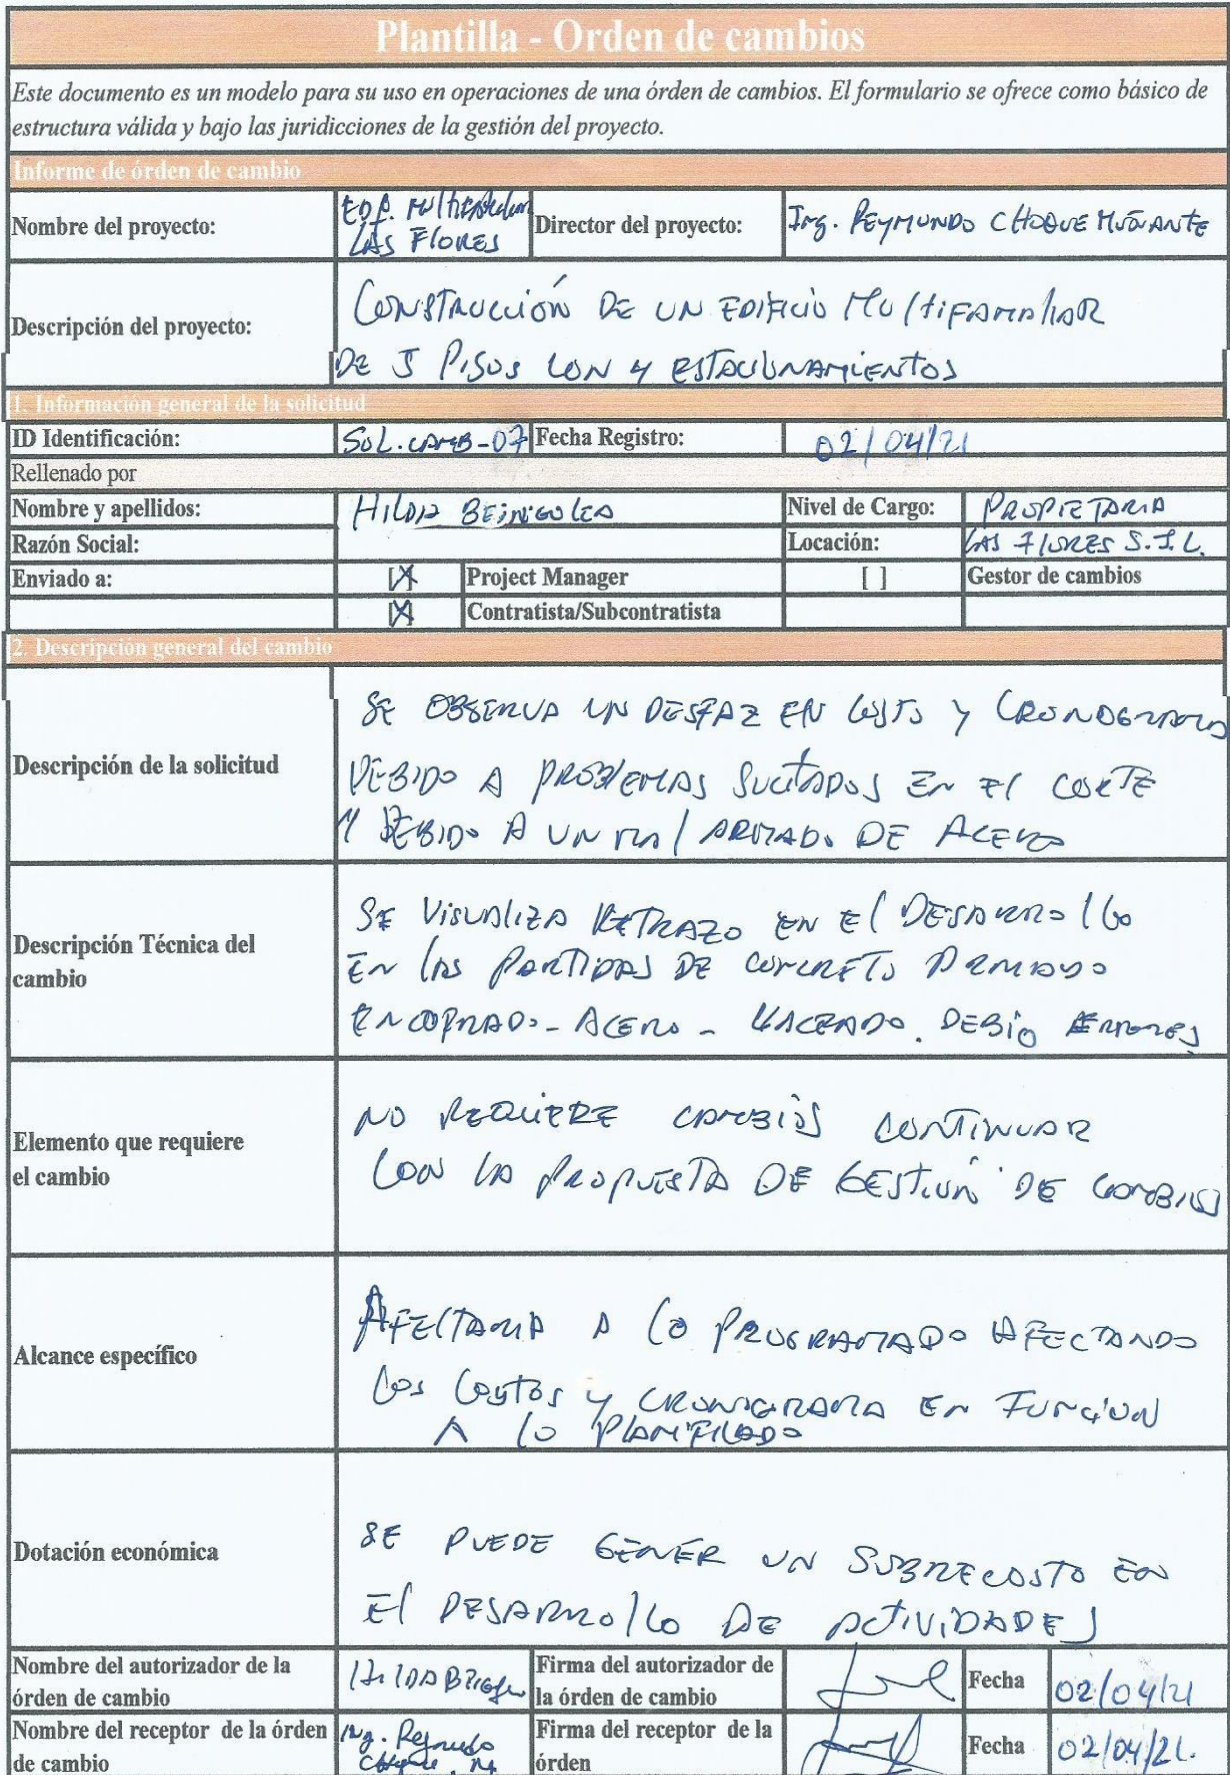 Plantilla - Orden de cambios
Este documento es un modelo para su uso en operaciones de una órden de cambios. El formulario se ofrece como básico de
estructura válida y bajo las juridicciones de la gestión del proyecto.
Informe de órden de cambio
Nombre del proyecto:
EDF. Multifamiliar
LAS FLORES
Director del proyecto:
Ing. REYMUNDO CHOQUE MUÑANTE
Descripción del proyecto:
CONSTRUCCIÓN DE UN EDIFICIO MULTIFAMILIAR
DE 5 PISOS CON 4 ESTACIONAMIENTOS
1. Información general de la solicitud
ID Identificación: SOL.CAMB-07 Fecha Registro: 02/04/21
Rellenado por
Nombre y apellidos: HILDA BEINGOLEA Nivel de Cargo: PROPIETARIA
Razón Social: Locación: LAS FLORES S.J.L.
Enviado a: [X] Project Manager [ ] Gestor de cambios
[X] Contratista/Subcontratista
2. Descripción general del cambio
Descripción de la solicitud
SE OBSERVA UN DESFAZ EN COSTO Y CRONOGRAMA
DEBIDO A PROBLEMAS SUCITADOS EN EL CORTE
Y DEBIDO A UN MAL ARMADO DE ACERO
Descripción Técnica del
cambio
SE VISUALIZA RETRAZO EN EL DESARROLLO
EN LAS PARTIDAS DE CONCRETO ARMADO
ENCOFRADO - ACERO - VACEADO. DEBIO ERRORES
Elemento que requiere
el cambio
NO REQUIERE CAMBIOS CONTINUAR
CON LA PROPUESTA DE GESTION DE CAMBIOS
Alcance específico
AFECTARIA A LO PROGRAMADO AFECTANDO
LOS COSTOS Y CRONOGRAMA EN FUNCION
A LO PLANIFICADO
Dotación económica
SE PUEDE GENER UN SOBRECOSTO EN
EL DESARROLLO DE ACTIVIDADES
Nombre del autorizador de la
órden de cambio
HILDA
Firma del autorizador de
la órden de cambio
Fecha 02/04/21
Nombre del receptor de la órden
de cambio
Ing. Reymundo
Choque M
Firma del receptor de la
órden
Fecha 02/04/21.